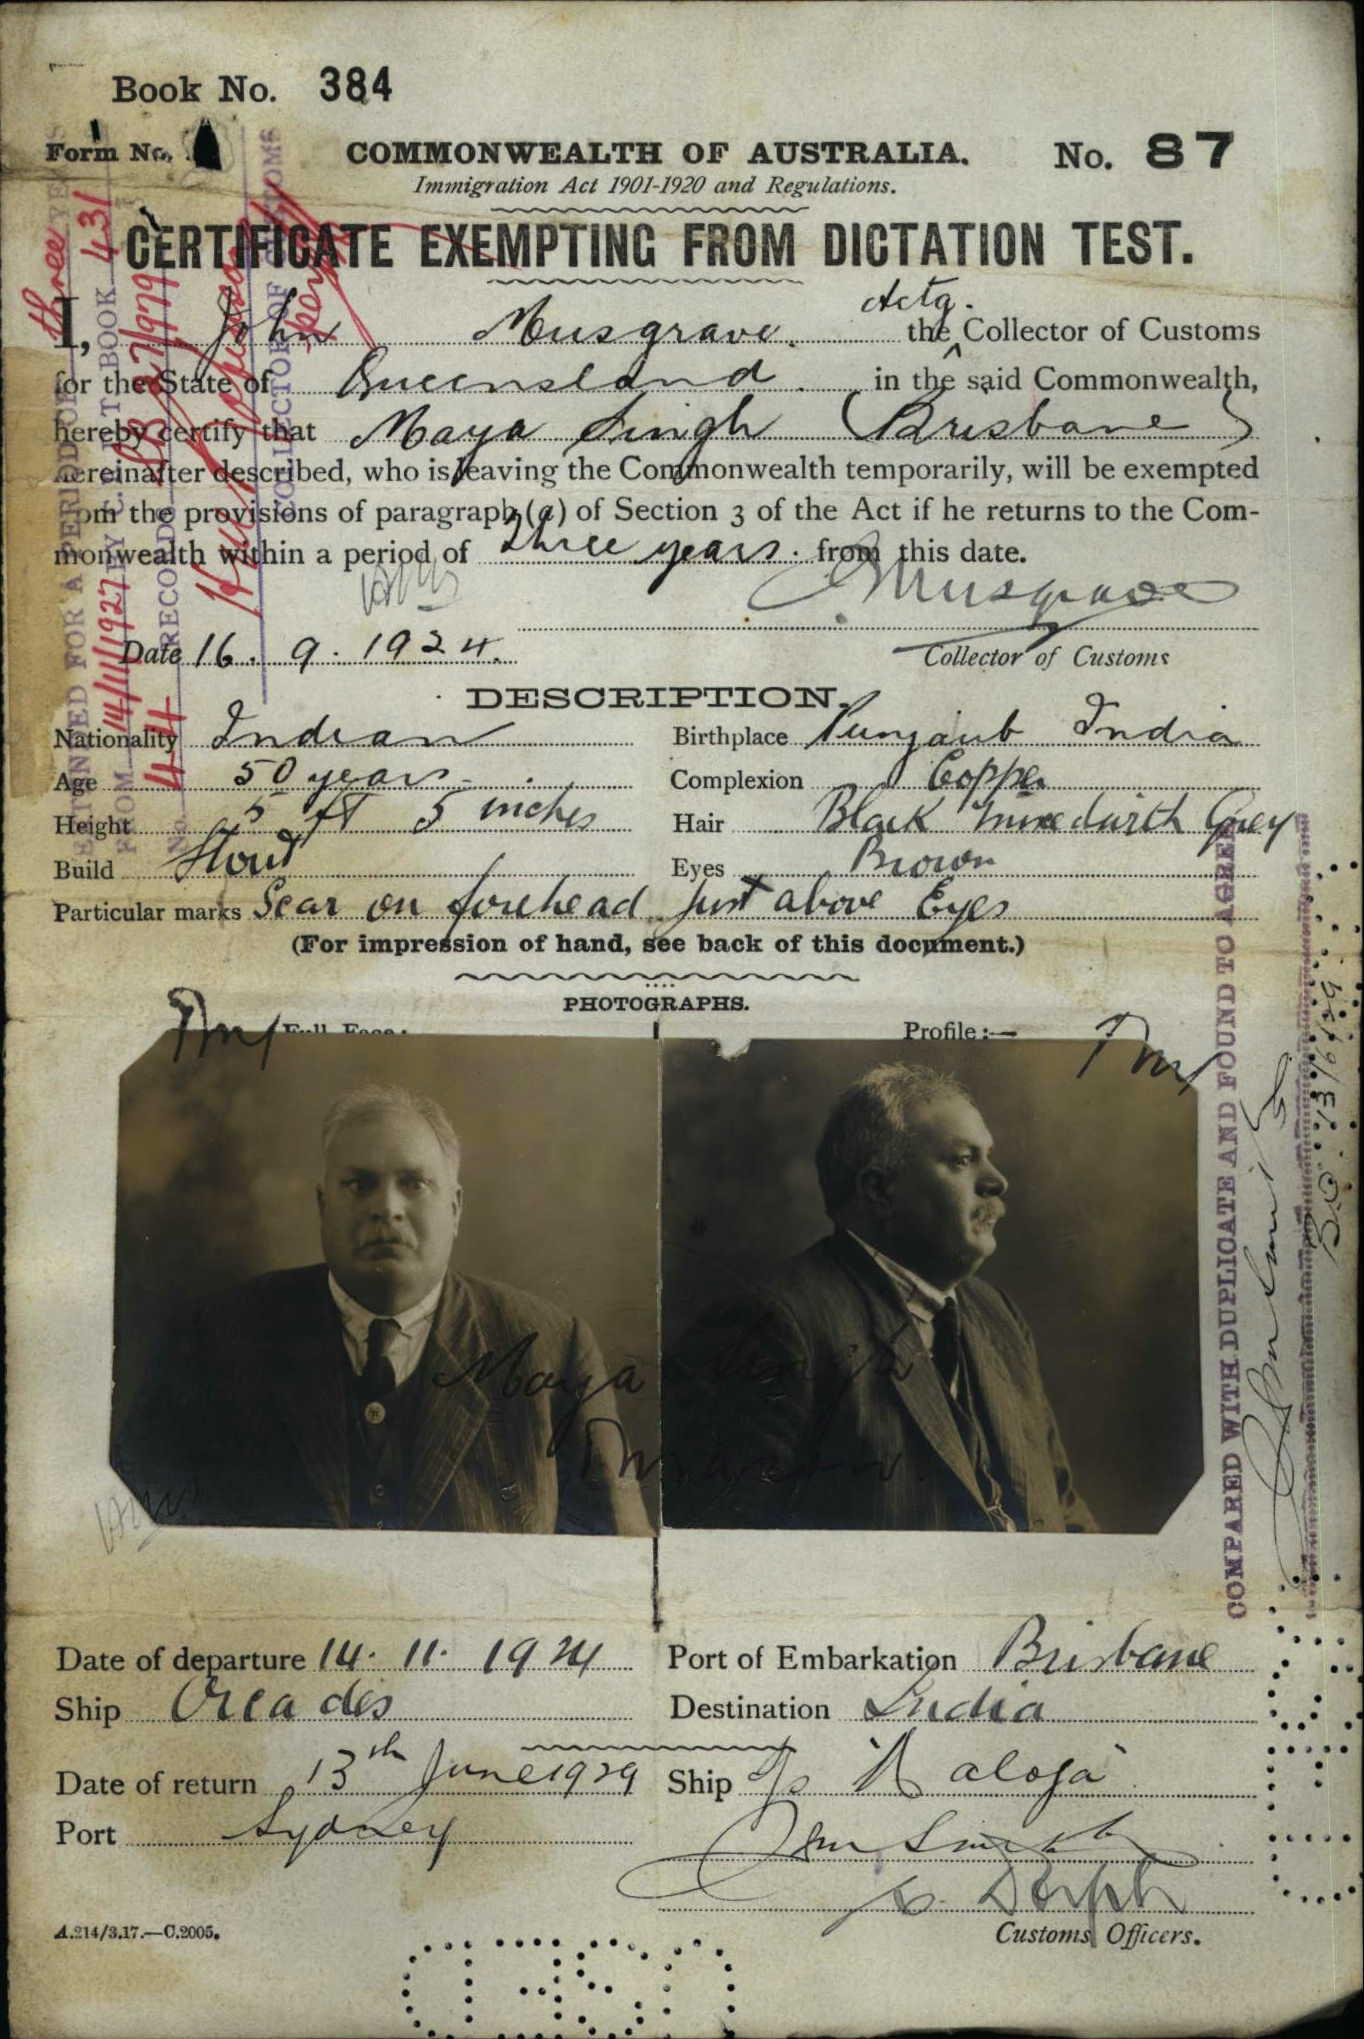 Book No. 384
Form No.
COMMONWEALTH OF AUSTRALIA. No. 87
Immigration Act 1901-1920 and Regulations.
CERTIFICATE EXEMPTING FROM DICTATION TEST.
I, John Musgrave. Actg. the Collector of Customs
for the State of Queensland. in the said Commonwealth,
hereby certify that Maya Singh (Brisbane)
hereinafter described, who is leaving the Commonwealth temporarily, will be exempted
from the provisions of paragraph (a) of Section 3 of the Act if he returns to the Com-
monwealth within a period of three years. from this date.
J Musgrave
Date 16. 9. 1924. Collector of Customs
EXTENDED FOR A PERIOD OF three YEARS
FROM 14/11/1927 BY C.E.D.T BOOK 431
No. 44 RECORDS
COLLECTOR OF CUSTOMS
DESCRIPTION.
Nationality Indian Birthplace Punjaub India
Age 50 years Complexion Copper
Height 5 ft 5 inches Hair Black mixed with Grey
Build Stout Eyes Brown
Particular marks Scar on forehead just above Eyes
(For impression of hand, see back of this document.)
PHOTOGRAPHS.
Full Face:
Profile:—
Maya Singh
COMPARED WITH DUPLICATE AND FOUND TO AGREE
13/6/29
Date of departure 14. 11. 1924 Port of Embarkation Brisbane
Ship Orcades Destination India
Date of return 13th June 1929 Ship s/s Naloja
Port Sydney
Customs Officers.
A.214/3.17.—C.2005.